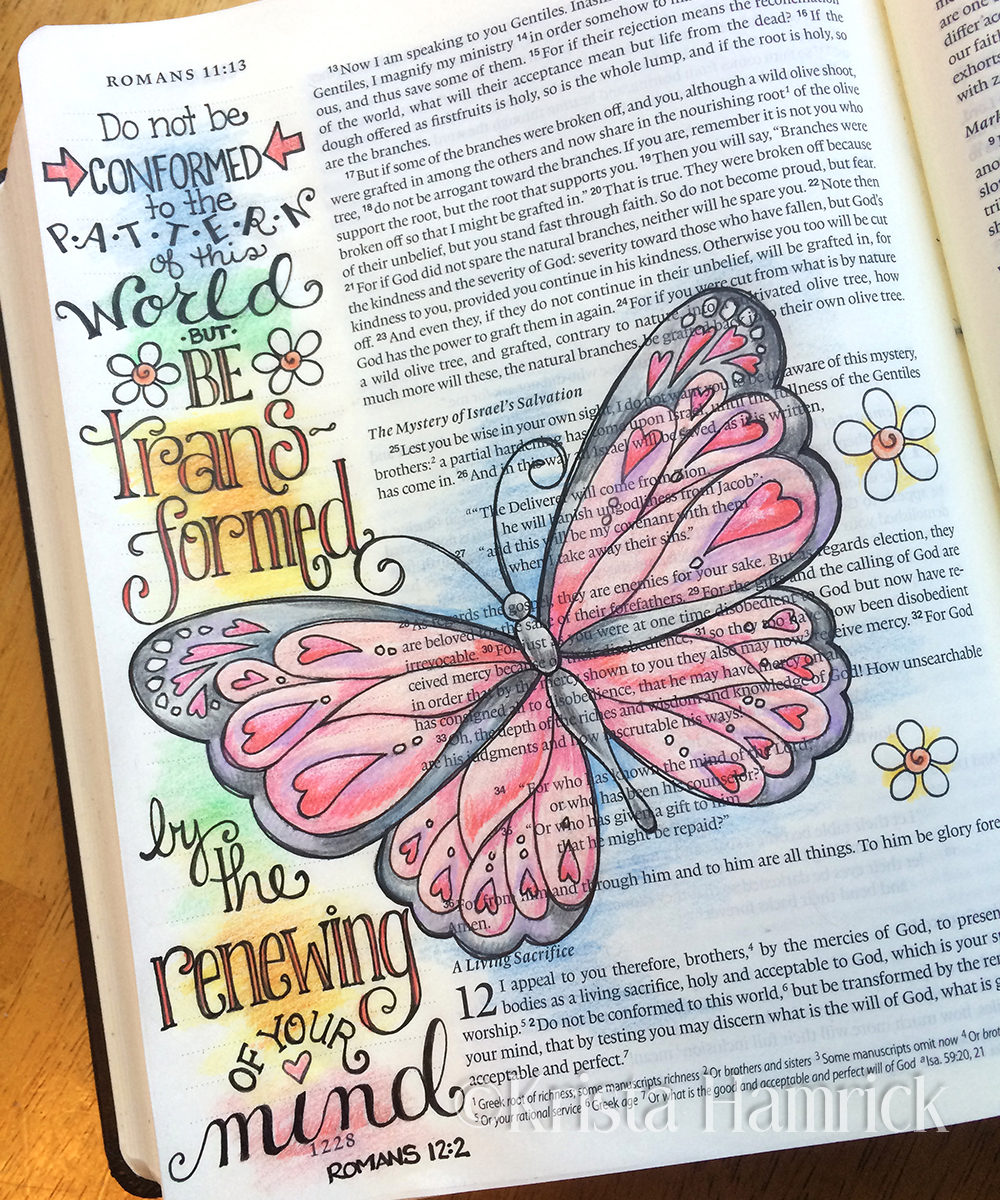 ROMANS 11:13
Do not be
CONFORMED
to the
P·A·T·T·E·R·N
of this
World
·BUT·
BE
trans~
formed
by
the
renewing
OF YOUR
mind
1228
ROMANS 12:2
13 Now I am speaking to you Gentiles.
Gentiles, I magnify my ministry 14 in order somehow to
ous, and thus save some of them. 15 For if their rejection means the reconciliation
of the world, what will their acceptance mean but life from the dead? 16 If the
dough offered as firstfruits is holy, so is the whole lump, and if the root is holy, so
are the branches.
17 But if some of the branches were broken off, and you, although a wild olive shoot,
were grafted in among the others and now share in the nourishing root1 of the olive
tree, 18 do not be arrogant toward the branches. If you are, remember it is not you who
support the root, but the root that supports you. 19 Then you will say, “Branches were
broken off so that I might be grafted in.” 20 That is true. They were broken off because
of their unbelief, but you stand fast through faith. So do not become proud, but fear.
21 For if God did not spare the natural branches, neither will he spare you. 22 Note then
the kindness and the severity of God: severity toward those who have fallen, but God's
kindness to you, provided you continue in his kindness. Otherwise you too will be cut
off. 23 And even they, if they do not continue in their unbelief, will be grafted in, for
God has the power to graft them in again. 24 For if you were cut from what is by nature
a wild olive tree, and grafted, contrary to nature, into a cultivated olive tree, how
much more will these, the natural branches, be grafted back into their own olive tree.
The Mystery of Israel's Salvation
25 Lest you be wise in your own sight, I do not want you to be unaware of this mystery,
brothers:2 a partial hardening has come upon Israel, until the fullness of the Gentiles
has come in. 26 And in this way all Israel will be saved, as it is written,
a“The Deliverer will come from Zion,
he will banish ungodliness from Jacob”;
27 “and this will be my covenant with them
when I take away their sins.”
28 As regards the gospel, they are enemies for your sake. But as regards election, they
are beloved for the sake of their forefathers. 29 For the gifts and the calling of God are
irrevocable. 30 For just as you were at one time disobedient to God but now have re-
ceived mercy because of their disobedience, 31 so they too have now been disobedient
in order that by the mercy shown to you they also may now receive mercy. 32 For God
has consigned all to disobedience, that he may have mercy on all.
33 Oh, the depth of the riches and wisdom and knowledge of God! How unsearchable
are his judgments and how inscrutable his ways!
34 “For who has known the mind of the Lord,
or who has been his counselor?”
35 “Or who has given a gift to him
that he might be repaid?”
36 For from him and through him and to him are all things. To him be glory
Amen.
A Living Sacrifice
12 I appeal to you therefore, brothers,4 by the mercies of God, to
bodies as a living sacrifice, holy and acceptable to God, which is your
worship.5 2 Do not be conformed to this world,6 but be transformed by the
your mind, that by testing you may discern what is the will of God, what is
acceptable and perfect.7
1 Greek root of richness; some manuscripts richness 2 Or brothers and sisters 3 Some manuscripts omit now 4 Or
5 Or your rational service 6 Greek age 7 Or what is the good and acceptable and perfect will of God a Isa. 59:20, 21
©Krista Hamrick
are one
differ
our faith
exhorts
with